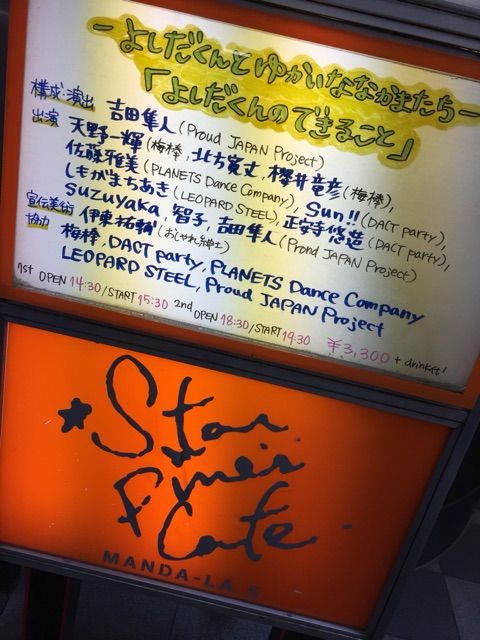 -よしだくんとゆかいななかまたち-
「よしだくんのできること」
構成・演出 吉田隼人(Proud JAPAN Project)
出演 天野一輝(梅棒), 北方寛丈, 櫻井竜彦(梅棒),
佐藤雅美(PLANETS Dance Company), Sun!!(DACT party),
しもがまちあき(LEOPARD STEEL), 正安寺悠造(DACT party),
SUZUYAKA, 智子, 吉田隼人(Proud JAPAN Project)
宣伝美術 伊東祐輔(おしゃれ紳士)
協力 梅棒, DACT party, PLANETS Dance Company
LEOPARD STEEL, Proud JAPAN Project
1st OPEN 14:30/START 15:30 2nd OPEN 18:30/START 19:30 ¥3,300 + drinket!
★Star
Pine's
Cafe
MANDA-LA